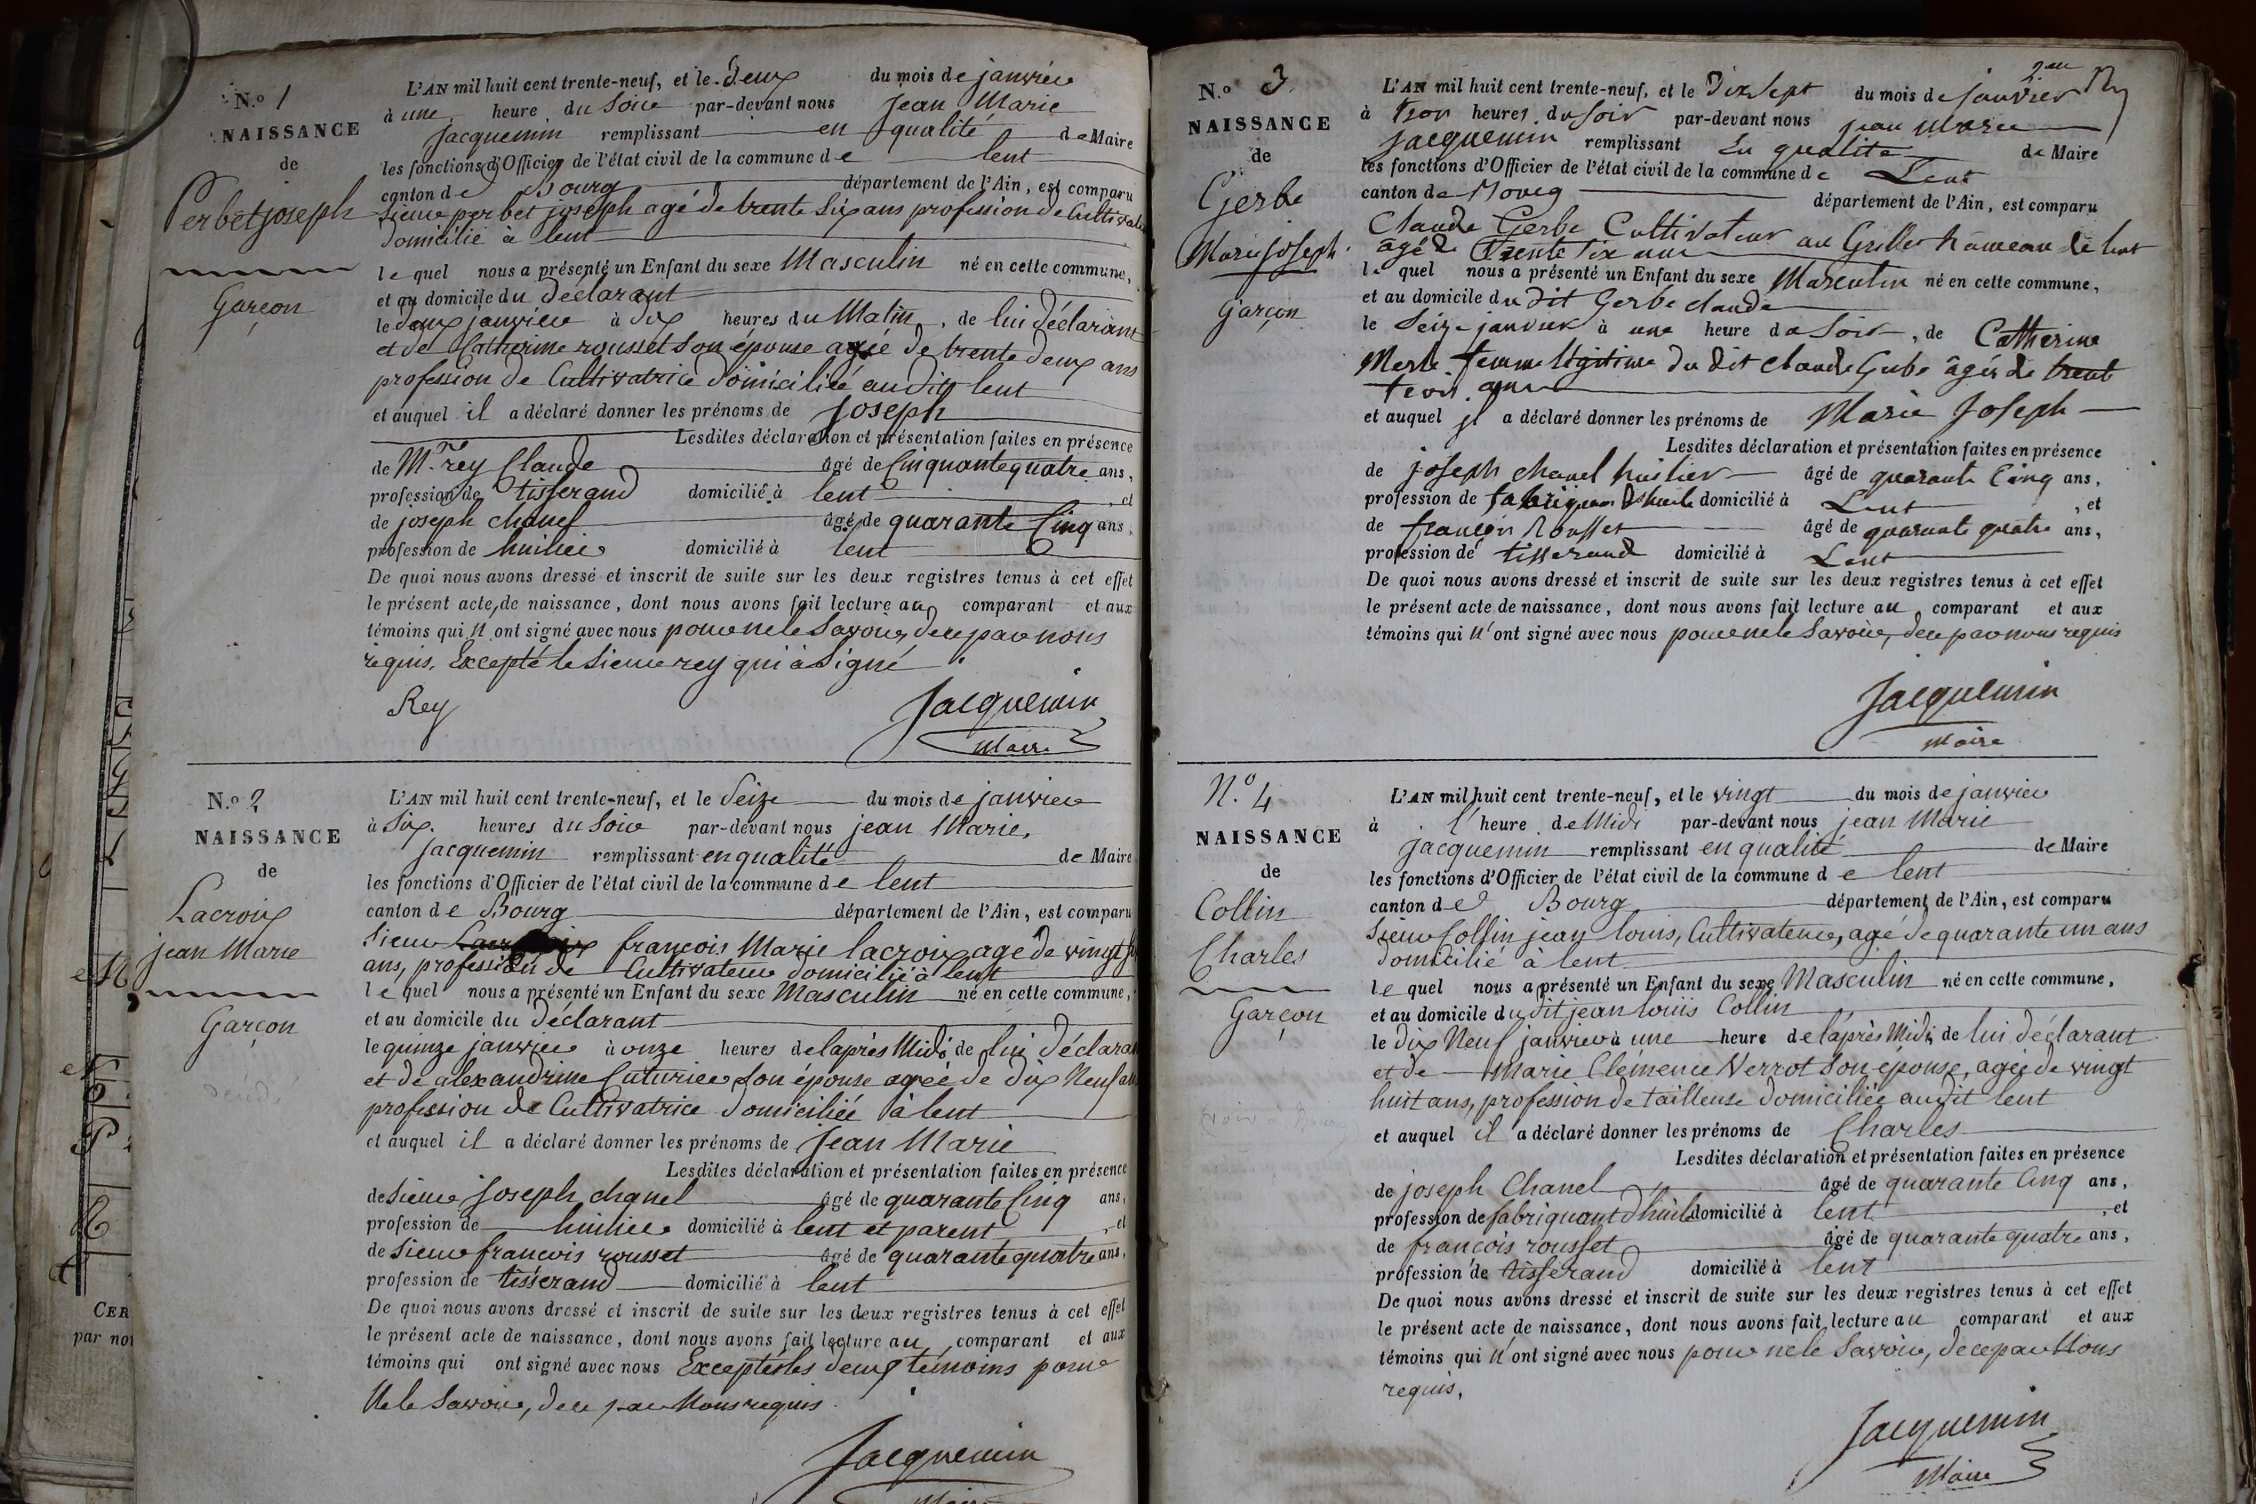 N.o 1
NAISSANCE
de
Perbet joseph
Garçon
L'AN mil huit cent trente-neuf, et le deux du mois de janvier
à une heure du Soir par-devant nous jean Marie
jacquemin remplissant en qualité de Maire
les fonctions d'Officier de l'état civil de la commune de lent
canton de Bourg département de l'Ain, est comparu
Sieur perbet joseph agé de trente Six ans profession de Cultivate
domicilié à lent
le quel nous a présenté un Enfant du sexe Masculin né en cette commune,
et au domicile du déclarant
le deux janvier à dix heures du Matin, de lui déclarant
et de Catherine rousset Son épouse agée de trente deux ans
profession de Cultivatrice domiciliée audit lent
et auquel il a déclaré donner les prénoms de Joseph
Lesdites déclaration et présentation faites en présence
de Mr. rey Claude âgé de Cinquante quatre ans,
profession de tisserand domicilié à lent, et
de joseph chanel âgé de quarante Cinq ans,
profession de huilier domicilié à lent
De quoi nous avons dressé et inscrit de suite sur les deux registres tenus à cet effet
le présent acte de naissance, dont nous avons fait lecture au comparant et aux
témoins qui n'ont signé avec nous pour ne le Savoir, de ce par nous
requis. Excepté le Sieur rey qui à Signé.
Rey Jacquemin
Maire
N.o 2
NAISSANCE
de
Lacroix
jean Marie
Garçon
L'AN mil huit cent trente-neuf, et le Seize du mois de janvier
à Six heures du Soir par-devant nous jean Marie
jacquemin remplissant en qualité de Maire
les fonctions d'Officier de l'état civil de la commune de lent
canton de Bourg département de l'Ain, est comparu
Sieur françois Marie lacroix agé de vingt
ans, profession de Cultivateur domicilié à lent
le quel nous a présenté un Enfant du sexe Masculin né en cette commune,
et au domicile du déclarant
le quinze janvier à onze heures de l'après Midi de lui déclarant
et de alexandrine Cuturier Son épouse agée de dix Neuf ans
profession de Cultivatrice domiciliée à lent
et auquel il a déclaré donner les prénoms de Jean Marie
Lesdites déclaration et présentation faites en présence
de Sieur Joseph chanel âgé de quarante Cinq ans,
profession de huilier domicilié à lent et parent, et
de Sieur françois rousset âgé de quarante quatre ans,
profession de tisserand domicilié à lent
De quoi nous avons dressé et inscrit de suite sur les deux registres tenus à cet effet
le présent acte de naissance, dont nous avons fait lecture au comparant et aux
témoins qui ont signé avec nous Exceptés les deux témoins pour
Ne le Savoir, de ce par Nous requis.
Jacquemin
Maire
CER
par no
N.o 3
NAISSANCE
de
Gerbe
Marie Joseph
garçon
L'AN mil huit cent trente-neuf, et le Dix Sept du mois de janvier
à trois heures du soir par-devant nous jean Marie
jacquemin remplissant en qualité de Maire
les fonctions d'Officier de l'état civil de la commune de Lent
canton de Bourg département de l'Ain, est comparu
Claude Gerbe Cultivateur au Grillet hâmeau de lent
agé de trente Six ans
le quel nous a présenté un Enfant du sexe Masculin né en cette commune,
et au domicile du dit Gerbe claude
le Seize janvier à une heure du Soir, de Catherine
Merle femme légitime du dit claude Gerbe âgée de trente
trois ans
et auquel il a déclaré donner les prénoms de Marie Joseph
Lesdites déclaration et présentation faites en présence
de joseph chanel huilier âgé de quarante Cinq ans,
profession de fabriquant d'huile domicilié à Lent, et
de françois Rousset âgé de quarante quatre ans,
profession de tisserand domicilié à Lent
De quoi nous avons dressé et inscrit de suite sur les deux registres tenus à cet effet
le présent acte de naissance, dont nous avons fait lecture au comparant et aux
témoins qui n'ont signé avec nous pour ne le Savoir, de ce par nous requis
Jacquemin
Maire
N.o 4
NAISSANCE
de
Collin
Charles
Garçon
L'AN mil huit cent trente-neuf, et le vingt du mois de janvier
à l'heure de Midi par-devant nous jean Marie
jacquemin remplissant en qualité de Maire
les fonctions d'Officier de l'état civil de la commune de lent
canton de Bourg département de l'Ain, est comparu
Sieur Collin jean louis, Cultivateur, agé de quarante un ans
domicilié à lent
le quel nous a présenté un Enfant du sexe Masculin né en cette commune,
et au domicile du dit jean louis Collin
le dix Neuf janvier à une heure de l'après Midi, de lui déclarant
et de Marie Clémence Verrot Son épouse, agée de vingt
huit ans, profession de tailleuse domiciliée audit lent
et auquel il a déclaré donner les prénoms de Charles
Lesdites déclaration et présentation faites en présence
de joseph Chanel âgé de quarante Cinq ans,
profession de fabriquant d'huile domicilié à lent, et
de françois rousset âgé de quarante quatre ans,
profession de tisserand domicilié à lent
De quoi nous avons dressé et inscrit de suite sur les deux registres tenus à cet effet
le présent acte de naissance, dont nous avons fait lecture au comparant et aux
témoins qui n'ont signé avec nous pour ne le Savoir, de ce par Nous
requis.
Jacquemin
Maire